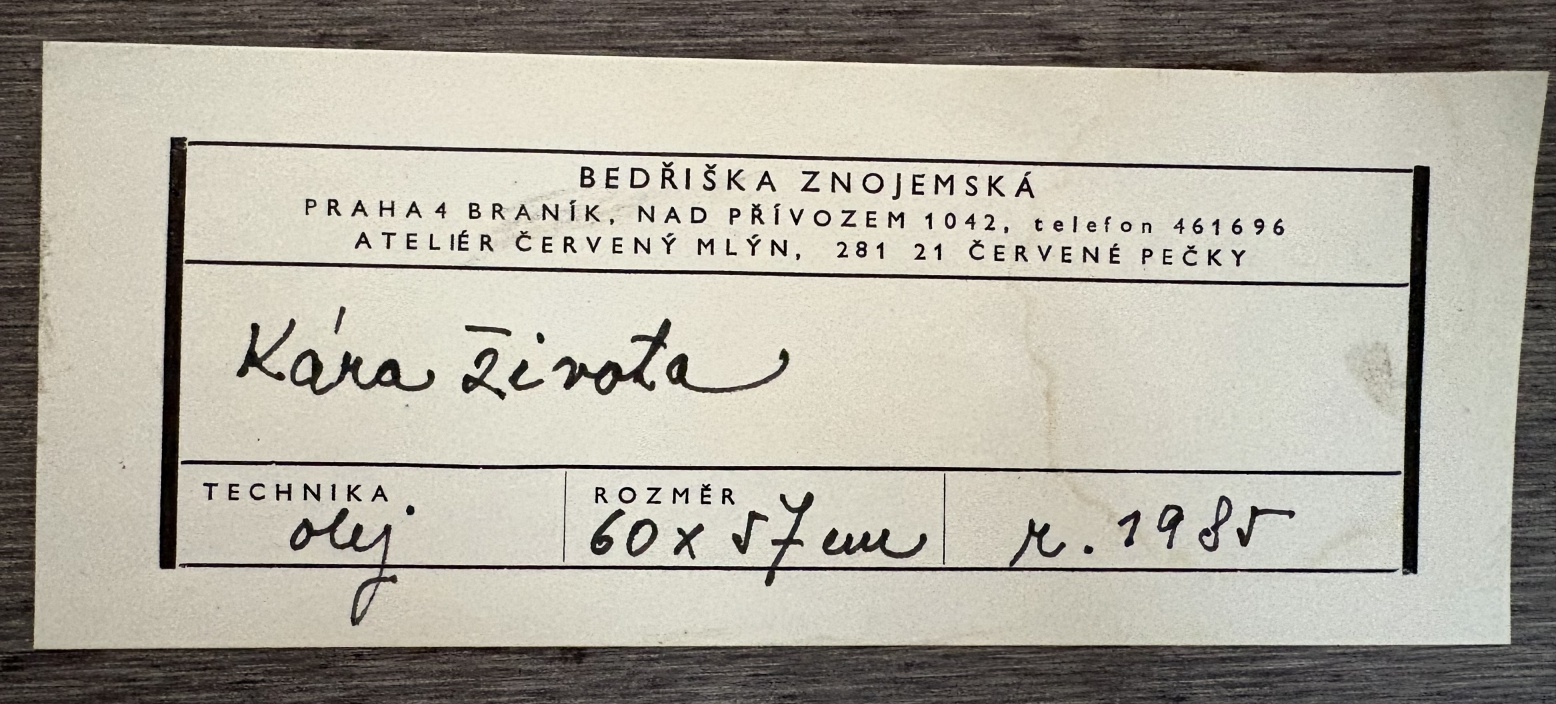 BEDŘIŠKA ZNOJEMSKÁ
PRAHA 4 BRANÍK, NAD PŘÍVOZEM 1042, telefon 461696
ATELIÉR ČERVENÝ MLÝN, 281 21 ČERVENÉ PEČKY
Kára života
TECHNIKA ROZMĚR
olej 60 x 57 cm r. 1985